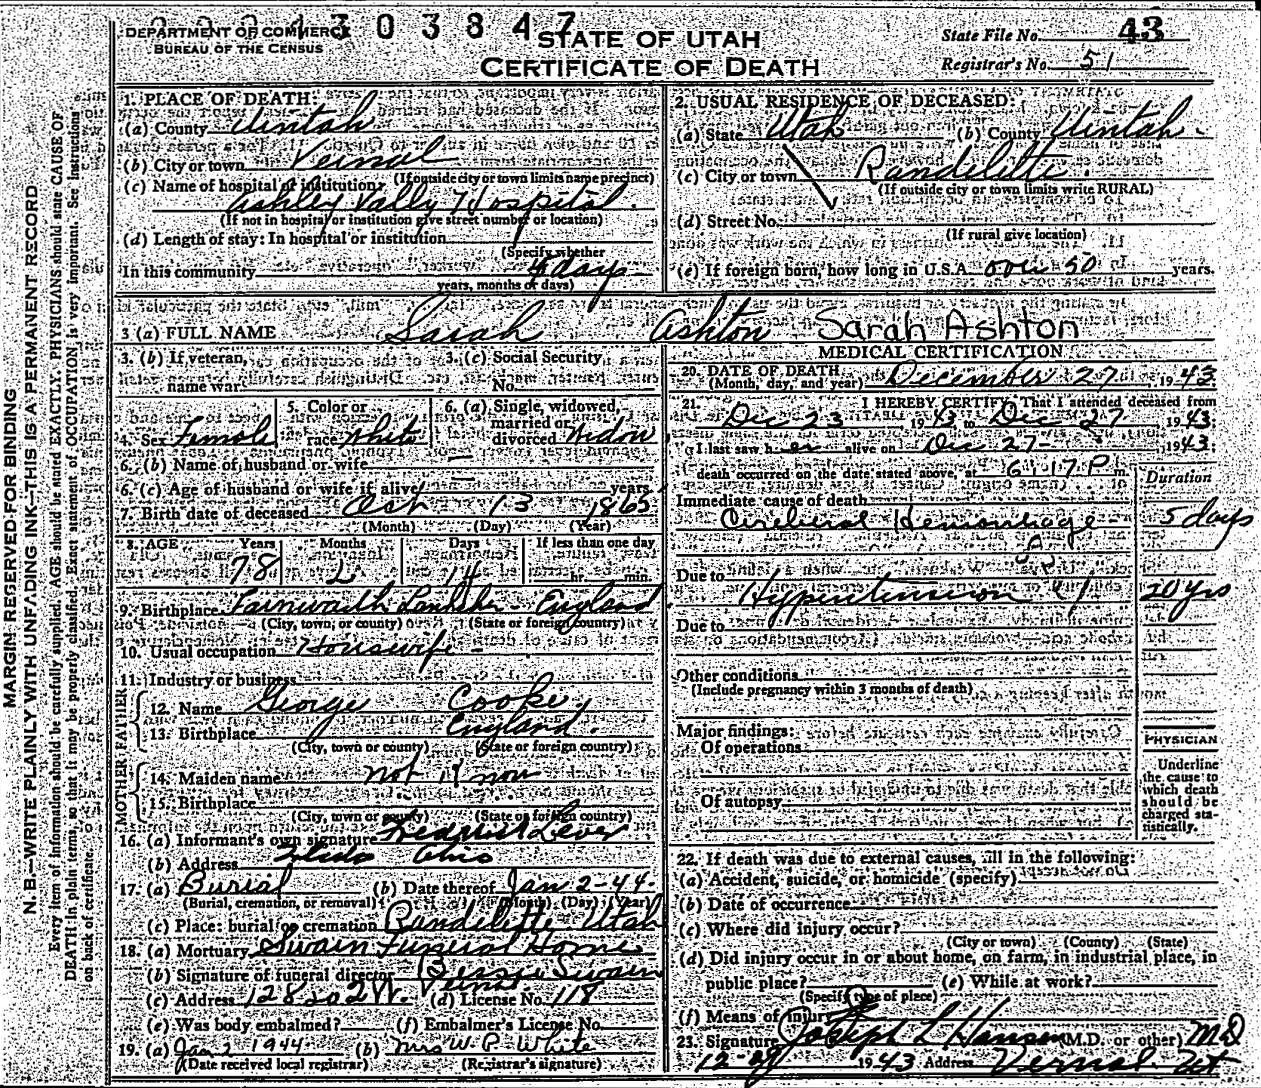 303847
DEPARTMENT OF COMMERCE
BUREAU OF THE CENSUS
STATE OF UTAH
CERTIFICATE OF DEATH
State File No. 43
Registrar's No. 51
MARGIN RESERVED FOR BINDING
N. B.—WRITE PLAINLY WITH UNFADING INK—THIS IS A PERMANENT RECORD
Every item of information should be carefully supplied. AGE should be stated EXACTLY. PHYSICIANS should state CAUSE OF
DEATH in plain terms, so that it may be properly classified. Exact statement of OCCUPATION is very important. See instructions
on back of certificate.
1. PLACE OF DEATH:
(a) County Uintah
(b) City or town Vernal
(If outside city or town limits name precinct)
(c) Name of hospital or institution:
Ashley Vally Hospital.
(If not in hospital or institution give street number or location)
(d) Length of stay: In hospital or institution
(Specify whether
In this community 4 days
years, months or days)
2. USUAL RESIDENCE OF DECEASED:
(a) State Utah (b) County Uintah.
(c) City or town Randelette.
(If outside city or town limits write RURAL)
(d) Street No.
(If rural give location)
(e) If foreign born, how long in U.S.A. over 50 years.
3 (a) FULL NAME Sarah Ashton Sarah Ashton
3. (b) If veteran,
name war
3. (c) Social Security
No.
4. Sex Female
5. Color or
race White
6. (a) Single, widowed,
married or
divorced Widow
6. (b) Name of husband or wife —
6. (c) Age of husband or wife if alive — years
7. Birth date of deceased Oct 13 1865
(Month) (Day) (Year)
8. AGE Years Months Days If less than one day
78 2 14 hr. min.
9. Birthplace Farnwaith Lanksher - England
(City, town, or county) (State or foreign country)
10. Usual occupation Housewife -
11. Industry or business
FATHER
12. Name George Cooke
13. Birthplace England.
(City, town or county) (State or foreign country)
MOTHER
14. Maiden name not know
15. Birthplace
(City, town or county) (State or foreign country)
16. (a) Informant's own signature Fredrick Lever
(b) Address Toledo Ohio
17. (a) Burial (b) Date thereof Jan 2-44.
(Burial, cremation, or removal) (Month) (Day) (Year)
(c) Place: burial or cremation Randelette Utah
18. (a) Mortuary Swain Funeral Home
(b) Signature of funeral director Bessie Swain
(c) Address 128 So 2 W. Vernal. (d) License No. 118
(e) Was body embalmed? (f) Embalmer's License No.
19. (a) Jan 2 1944 (b) Mrs W. P. White
(Date received local registrar) (Registrar's signature)
MEDICAL CERTIFICATION
20. DATE OF DEATH
(Month, day, and year) December 27, 1943
21. I HEREBY CERTIFY, That I attended deceased from
Dec 23, 1943 to Dec 27 1943.
I last saw h er alive on Dec 27- 1943.
death occurred on the date stated above, at 6:17 P m.
Duration
Immediate cause of death
Cerebral Hemorrhage - 5 days
Due to
Hypertension 20 yrs
Due to
Other conditions
(Include pregnancy within 3 months of death)
Major findings:
Of operations
Of autopsy
PHYSICIAN
Underline
the cause to
which death
should be
charged sta-
tistically.
22. If death was due to external causes, fill in the following:
(a) Accident, suicide, or homicide (specify)
(b) Date of occurrence
(c) Where did injury occur?
(City or town) (County) (State)
(d) Did injury occur in or about home, on farm, in industrial place, in
public place? (e) While at work?
(Specify type of place)
(f) Means of injury
23. Signature Joseph L Hansen (M.D. or other) MD
12-29 1943 Address Vernal. Ut